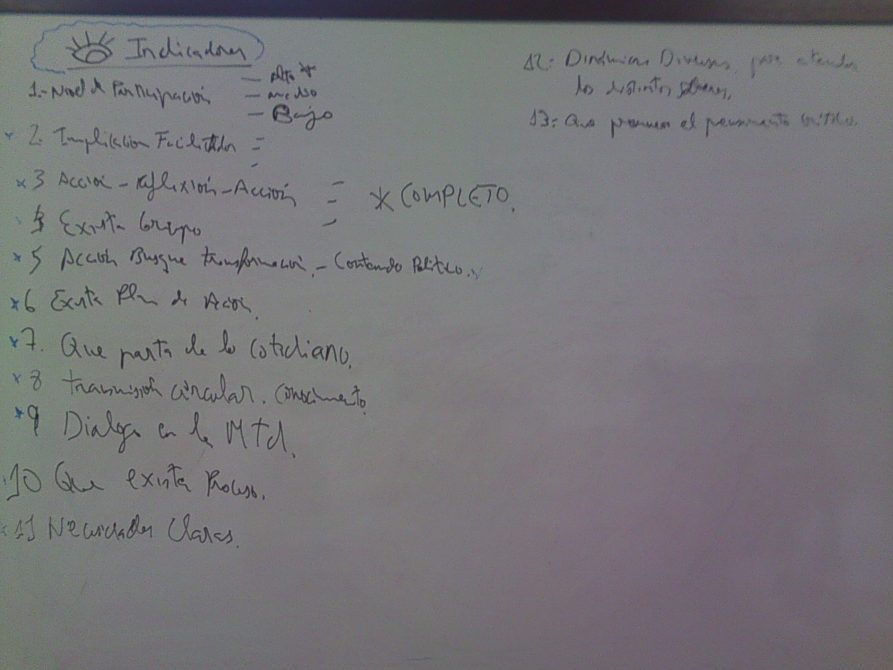 Indicadores
1.- Nivel de Participación
— Alto
— medio
— Bajo
2. Implicación Facilitador
3 Acción - reflexión - Acción
* COMPLETO.
4 Exista Grupo
5 Acción Busque transformación - Contenido Político.
6 Exista Plan de Acción.
7. Que parta de lo cotidiano.
8 transmisión circular. conocimiento.
9 Dialogo en la Mtd.
10 Que exista Proceso.
11 Necesidades Claras.
12: Dinámicas Diversas para atender
los distintos saberes.
13: Que promueva el pensamiento crítico.